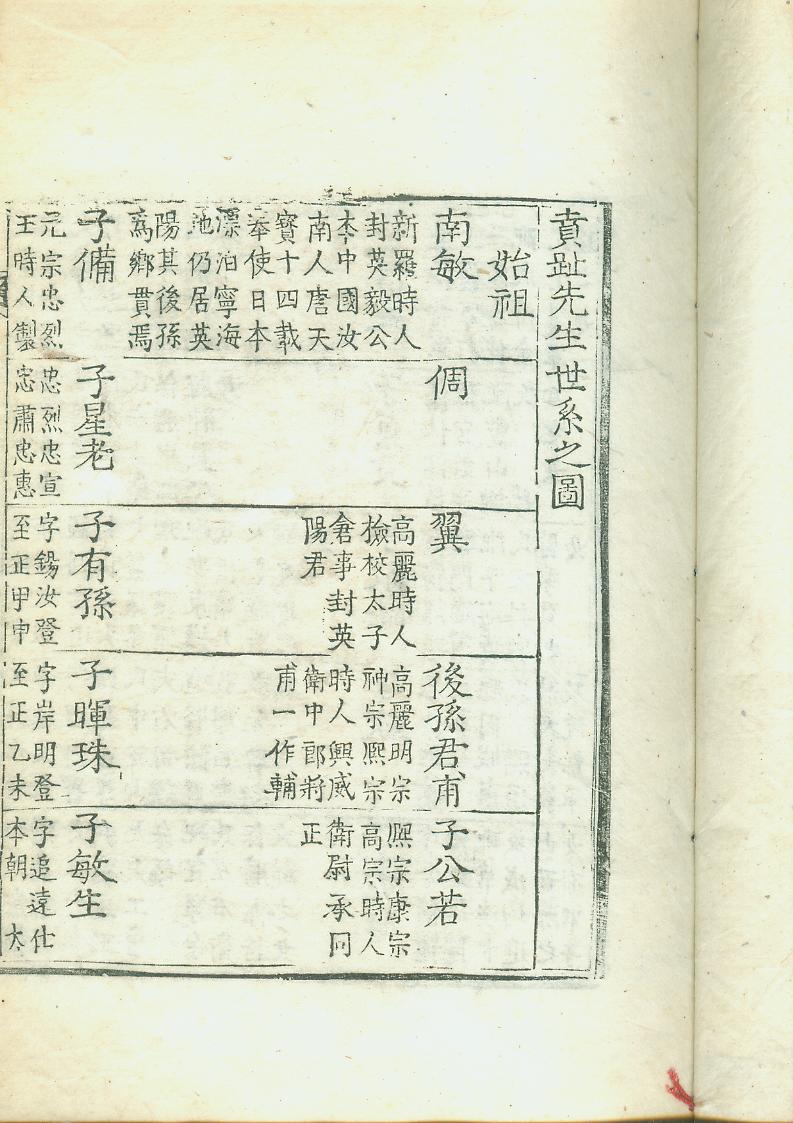 賁趾先生世系之圖
始祖
南敏
新羅時人
封英毅公
本中國汝
南人唐天
寶十四載
奉使日本
漂泊寧海
地仍居英
陽其後孫
爲鄉貫焉
倜
翼
高麗時人
檢校太子
詹事封英
陽君
後孫君甫
高麗明宗
神宗熙宗
時人興威
衛中郎將
甫一作輔
子公若
熙宗康宗
高宗時人
衛尉承同
正
子備
元宗忠烈
王時人製
子星老
忠烈忠宣
忠肅忠惠
子有孫
字錫汝登
至正甲申
子暉珠
字岸明登
至正乙未
子敏生
字追遠仕
本朝 太